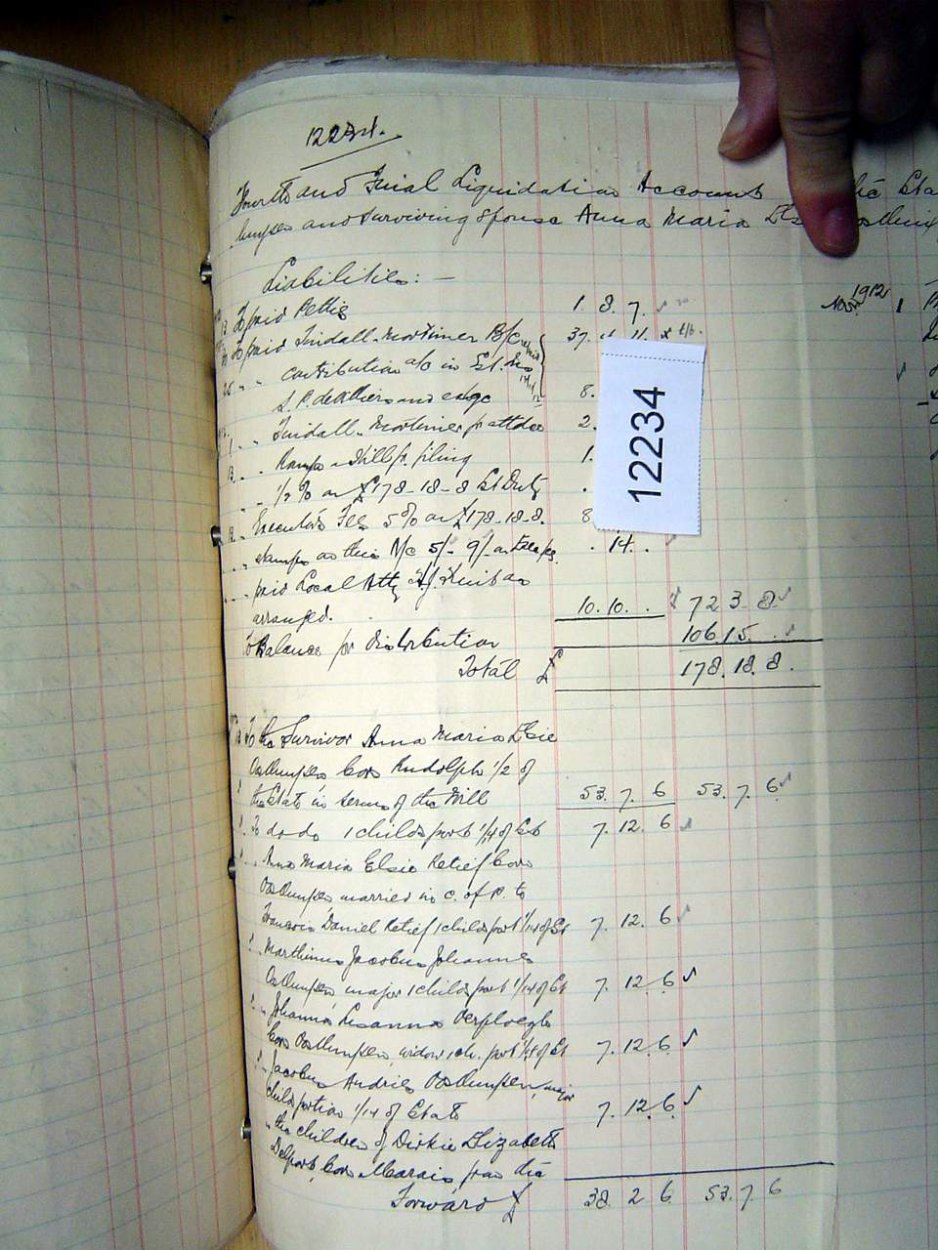 12234.
Fourth and Final Liquidation Account
and Surviving Spouse Anna Maria
Liabilities: -
To paid Petties 1 8 7.
To paid Tindall-Mortimer B/C 37.
" " contribution a/c in Est. 
and exge 8.
" Tindall-Mortimer 2.
" for filing 1.
" 1/2 % on £178-18-8 Est Duty
" Executor's Fees 5% on £178.18.8. 8
" stamps on this A/c 5/- 9/- . 14. .
" paid Local Atty
arranged. 10.10. . 72 3 8
To Balance for distribution 106.15 .
Total £ 178.18.8.
1912 1
12234
To the Survivor Anna Maria Elsie
Oosthuysen born Rudolph 1/2 of
the Estate in terms of the Will 53. 7. 6 53. 7. 6
" To do do 1 childs port 1/14 of Est 7. 12. 6
" Anna Maria Elsie Retief born
Oosthuysen married in c. of p. to
Francois Daniel Retief 1 childs port 1/14 of Est 7. 12. 6
" Marthinus Jacobus Johannes
Oosthuysen major 1 childs port 1/14 of Est 7. 12. 6
" Johanna Susanna
born Oosthuysen, widow 1 ch. port 1/14 of Est 7. 12. 6
" Jacobus Andries Oosthuysen, major
childs portion 1/14 of Estate 7. 12. 6
" the children of Dirkie Elizabeth
Delport, born Marais, from the
Forward £ 38 2 6 53. 7 6